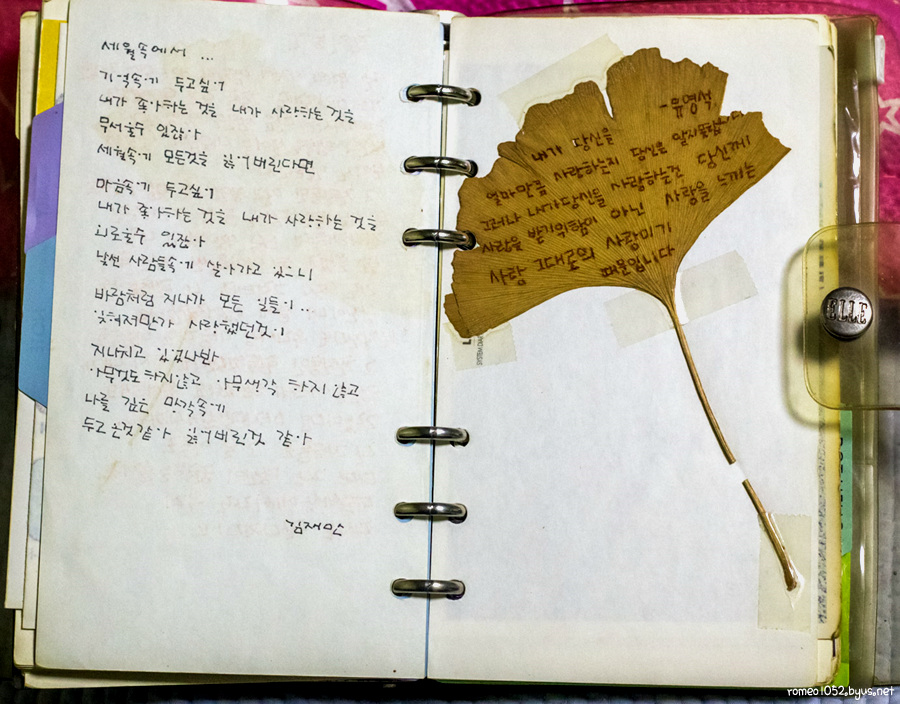 세월속에서 ...
기억속에 두고싶어
내가 좋아하는 것을 내가 사랑하는 것을
무서울수 있잖아
세월속에 모든것을 잃어버린다면
마음속에 두고싶어
내가 좋아하는 것을 내가 사랑하는 것을
외로울수 있잖아
낯선 사람들속에 살아가고 있으니
바람처럼 지나가 모든 일들이...
잊혀져만가 사랑했던것이
지나치고 있었나봐
아무것도 하지않고 아무생각 하지않고
나를 깊은 망각속에
두고온것같아 잃어버린것 같아
김재만
-유영석
내가 당신을
얼마만큼 사랑하는지 당신은 알지못합니다
그러나 내가 당신을 사랑하는건 당신에게
사랑을 받기위함이 아닌 사랑을 느끼는
사랑 그대로의 사랑이기
때문입니다
ELLE
romeo1052.byus.net